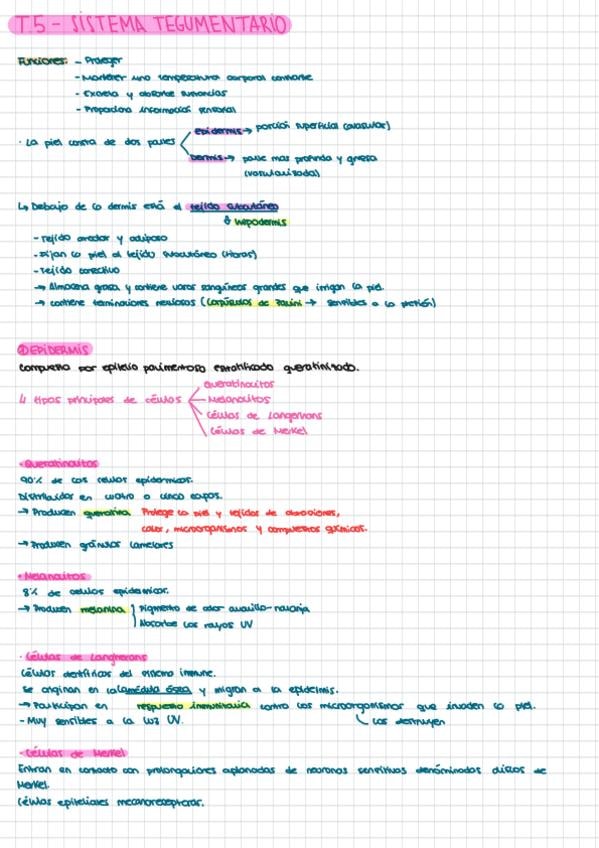 T.5 - SISTEMA TEGUMENTARIO
Funciones: - Proteger
- Mantener una temperatura corporal constante
- Excreta y absorbe sustancias
- Proporciona información sensorial
· La piel consta de dos partes
epidermis → porción superficial (avascular)
Dermis → parte mas profunda y gruesa
(vascularizada)
↳ Debajo de la dermis está el tejido subcutáneo
ó hipodermis
- Tejido areolar y adiposo
- Fijan la piel al tejido subcutáneo (fibras)
- Tejido conectivo
→ Almacena grasa y contiene vasos sanguíneos grandes que irrigan la piel.
→ contiene terminaciones nerviosas (corpúsculos de Pacini → sensibles a la presión)
① EPIDERMIS
Compuesta por epitelio pavimentoso estratificado queratinizado.
4 tipos principales de células
Queratinocitos
Melanocitos
Células de Langerhans
Células de Merkel
· Queratinocitos
90% de las células epidérmicas.
Distribuidas en cuatro o cinco capas.
→ Producen queratina Protege la piel y tejidos de abrasiones,
calor, microorganismos y compuestos químicos.
→ Producen gránulos lamelares
· Melanocitos
8% de células epidérmicas.
→ Producen melanina Pigmento de color amarillo-naranja
Absorbe los rayos UV
· Células de Langherans
Células dentríticas del sistema inmune.
Se originan en la médula ósea y migran a la epidermis.
→ Participan en respuesta inmunitaria contra los microorganismos que invaden la piel.
- Muy sensibles a la luz UV.
Las destruyen
· Células de Merkel
Entran en contacto con prolongaciones aplanadas de neuronas sensitivas denóminadas discos de
Merkel.
Células epiteliales mecanoreceptoras.